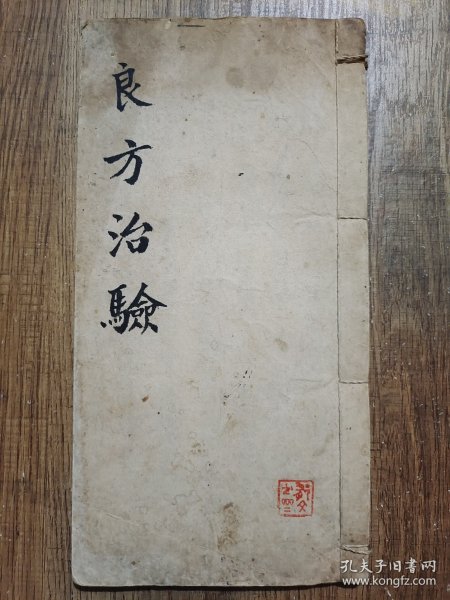 良方治驗
孔夫子旧书网
www.kongfz.com